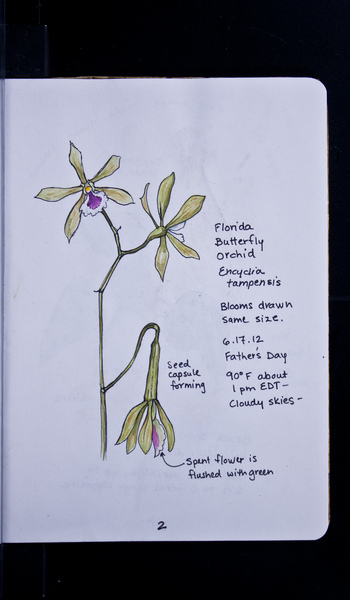 Florida
Butterfly
Orchid
Encyclia
tampensis
Blooms drawn
same size.
6.17.12
Father's Day
90°F about
1 pm EDT-
Cloudy skies-
Seed
capsule
forming
Spent flower is
flushed with green
2